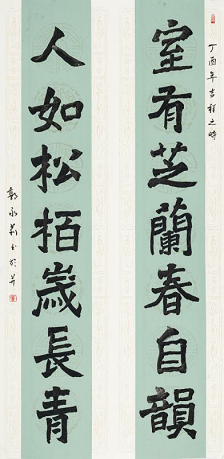 丁酉年吉祥之時
室有芝蘭春自韻
人如松栢歲長青